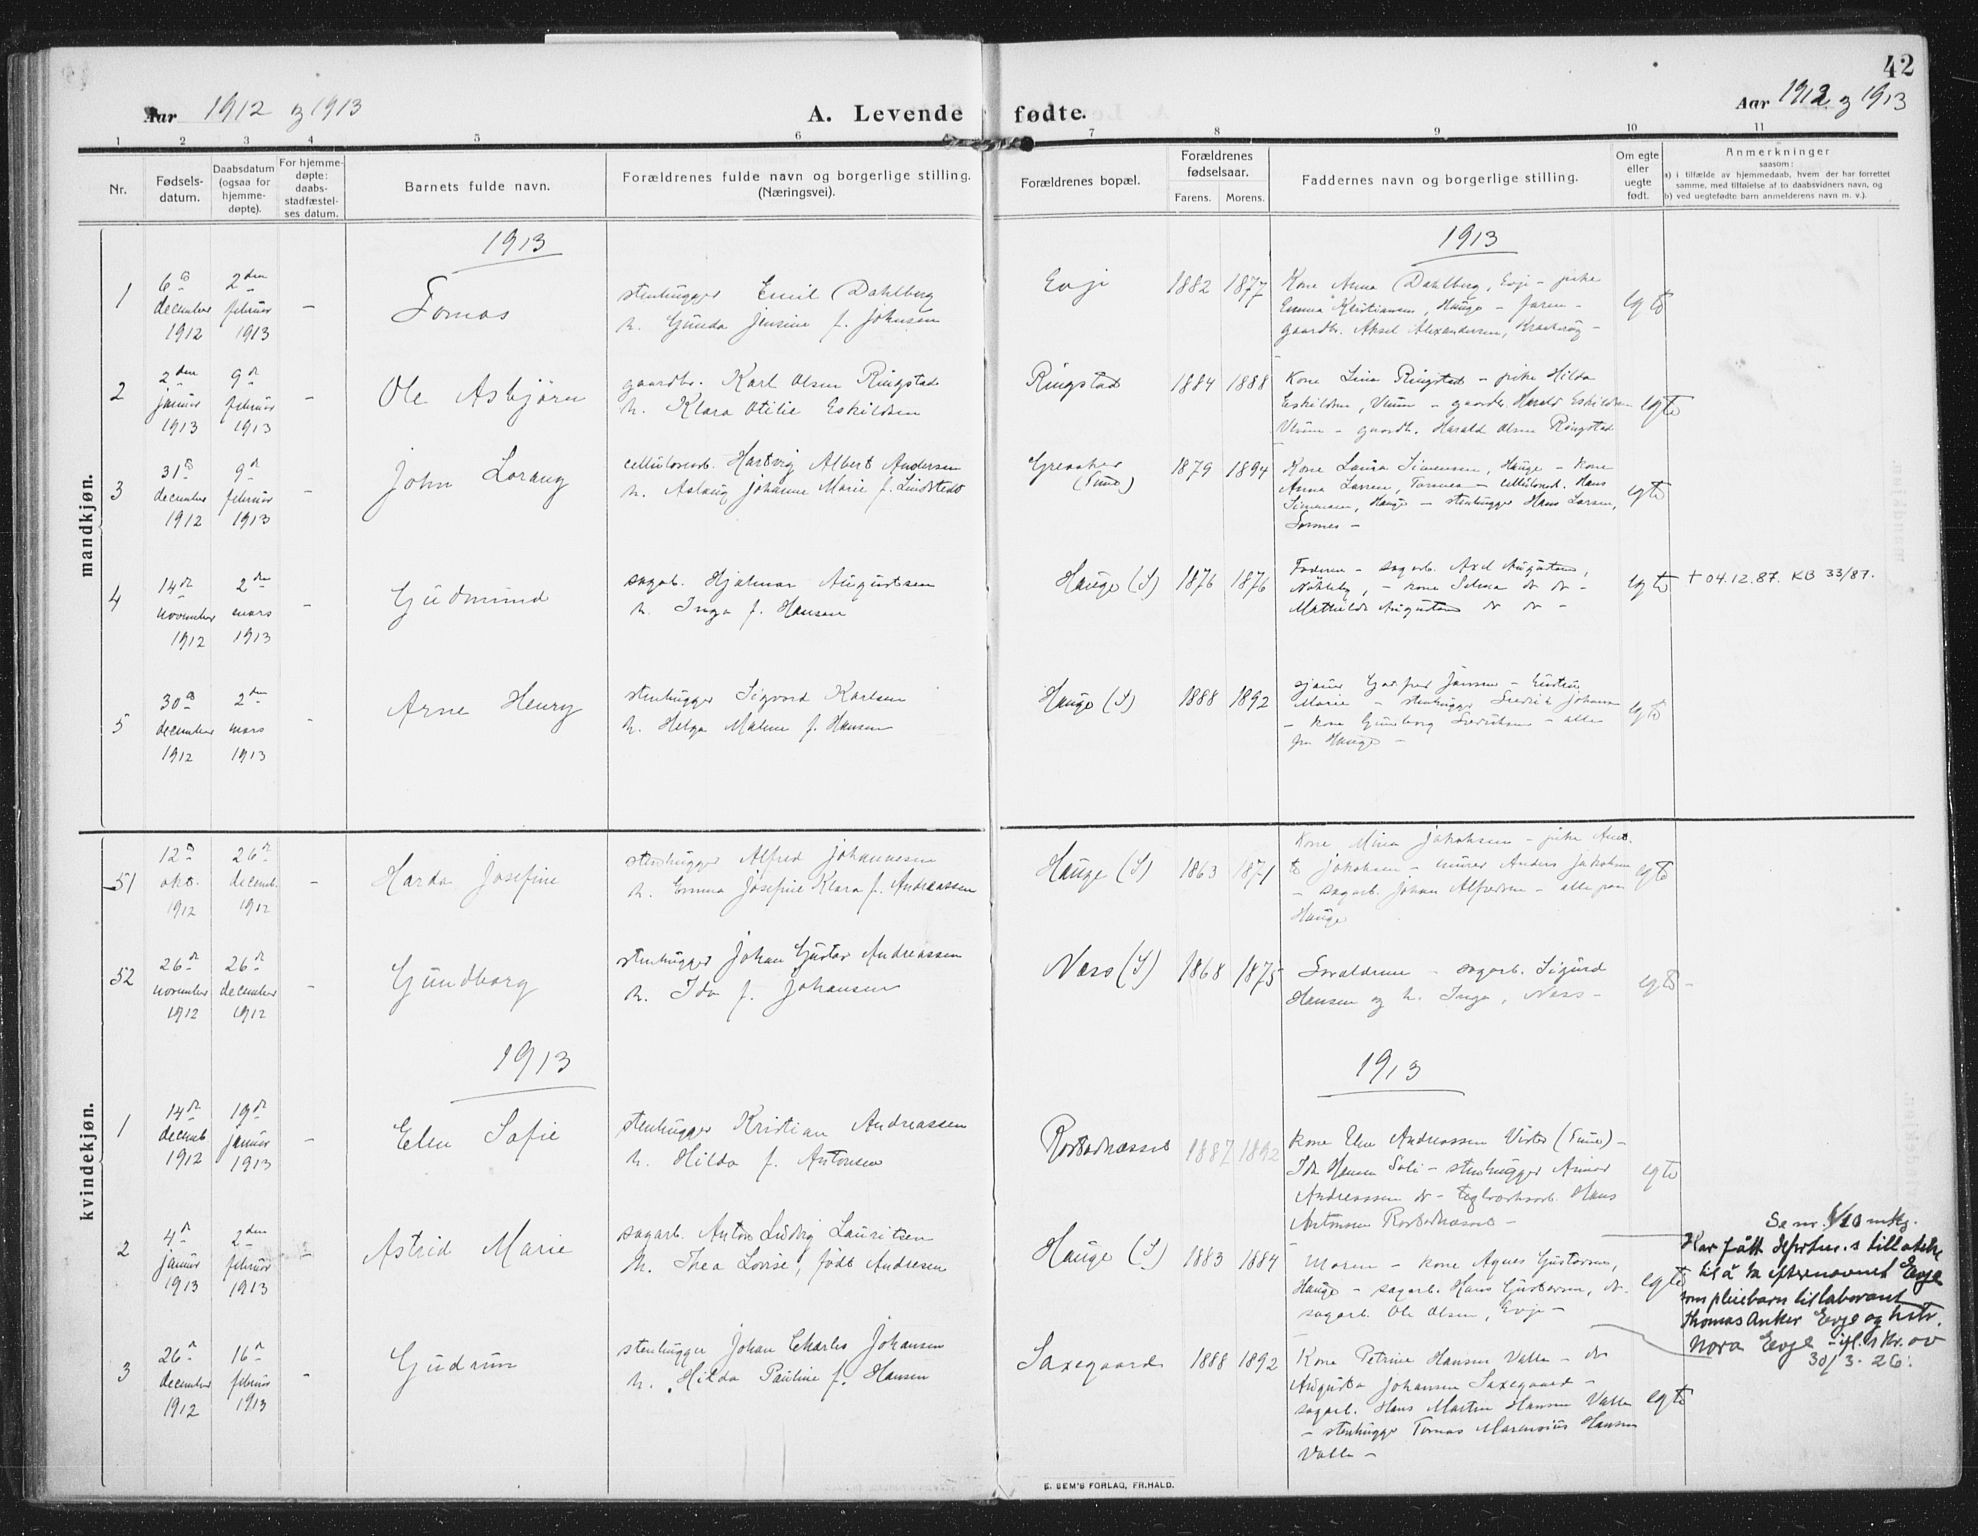 42
Aar 1912 og 1913
A. Levende fødte.
Aar 1912 og 1913
1 2 3 4 5 6 7 8 9 10 11
Nr.
Fødsels-
datum.
Daabsdatum
(ogsaa for
hjemme-
døpte).
For hjemme-
døpte:
daabs-
stadfæstel-
ses datum.
Barnets fulde navn.
Forældrenes fulde navn og borgerlige stilling.
(Næringsvei).
Forældrenes bopæl.
Forældrenes
fødselsaar.
Farens. Morens.
Faddernes navn og borgerlige stilling.
Om egte
eller
uegte
født.
Anmerkninger
saasom:
a) i tilfælde av hjemmedaab, hvem der har forrettet
samme, med tilføielse af to daabsvidners navn, og
b) ved uegtefødte barn anmelderens navn m. v.).
mandkjøn.
1913
1913
1
6te december 1912
2den februar 1913
–
Tomas
stenhugger Emil Dahlberg
h. Gunda Jensine f. Johnsen
Evje
1882 1877
Kone Anna Dahlberg, Evje – pike
Emma Kristiansen, Hauge – faren –
gaardbr. Aksel Alexandersen,
egte
2
2den januar 1913
9de februar 1913
–
Ole Asbjørn
gaardbr. Karl Olsen Ringstad
h. Klara Otilie Eskildsen
Ringstad
1884 1888
Kone Lina Ringstad – pike Hilda
Eskildsen, – Harald Eskildsen
– gaardb. Harald Olsen Ringstad
egte
3
31te december 1912
9de februar 1913
–
John Lorang
cellulosearb. Hartvig Albert Andersen
h. Aslaug Johanne Marie f. Lindstedt
Greaaker
(Tune)
1879 1894
Kone Laura Simensen, Hauge – kone
Anna Larsen, – cellulosearb. Hans
Simensen, Hauge – stenhugger Hans Larsen,
egte
4
14de november 1912
2den mars 1913
–
Gudmund
sagarb. Hjalmar Augustsen
h. Inga f. Hansen
Hauge (S)
1876 1876
– sagarb. Axel
– kone Selma do do –
Mathilde do do –
egte
+ 04.12.87. KB 33/87.
5
30te december 1912
2den mars 1913
–
Arne Henry
stenhugger Sigvard Karlsen
h. Helga Malene f. Hansen
Hauge (S)
1888 1892
Marie – stenhugger Fredrik Johansen
– kone Gunborg Fredriksen – alle
fra Hauge –
egte
kvindekjøn.
51
12te okt. 1912
26de decemb. 1912
–
Harda Josefine
stenhugger Alfred Johannesen
h. Emma Josefine Klara f. Andreassen
Hauge (S)
1863 1871
Kone Mina Jakobsen – pike
Jakobsen – murer Anders Jakobsen
– sagarb. Johan Alfredsen – alle paa
Hauge
egte
52
26de november 1912
26de december 1912
–
Gundborg
stenhugger Johan Gustav Andreassen
h. Ida f. Johansen
Næss (S)
1868 1875
Forældrene – sagarb. Sigurd
Hansen og h. Inga, Næss –
egte –
1913
1913
1
14de decemb 1912
19de januar 1913
–
Elen Sofie
stenhugger Kristian Andreassen
h. Hilda f. Antonsen
1887 1892
Kone Elen Andreassen (Tune) –
Ida Hansen – stenhugger
Andreassen do – teglværksarb. Hans
Antonsen
egte
2
4de januar 1913
2den februar 1913
–
Astrid Marie
sagarb. Anton Ludvig Lauritsen
h. Thea Lovise, født Andresen
Hauge (S)
1883 1884
Moren – kone Agnes Gustavsen,
Hauge – sagarb. Hans Gustavsen, do.
sagarb. Ole Olsen, Evje –
egte
Se nr. 1/20 mkj.
Har fått tillatelse
til å ta efternavnet Evje
som pleiebarn til laborant
Thomas Anker Evje og hstr.
Nora Evje – ifl. skr. av
30/3-26.
3
26de december 1912
16de februar 1913
–
Gudrun
stenhugger Johan Charles Johansen
h. Hilda Pauline f. Hansen
Saxegaard
1888 1892
Kone Petrine Hansen Valle – do
Augusta Johansen Saxegaard –
sagarb. Hans Martin Hansen Valle
– stenhugger Tomas Hansen
Valle –
egte
E. SEM'S FORLAG, FR.HALD.